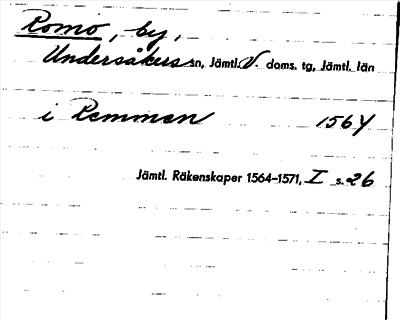 Romo, by,
Undersåkers sn, Jämtl. V. doms. tg, Jämtl. län
i Remmen 1564
Jämtl. Räkenskaper 1564-1571, I s. 26